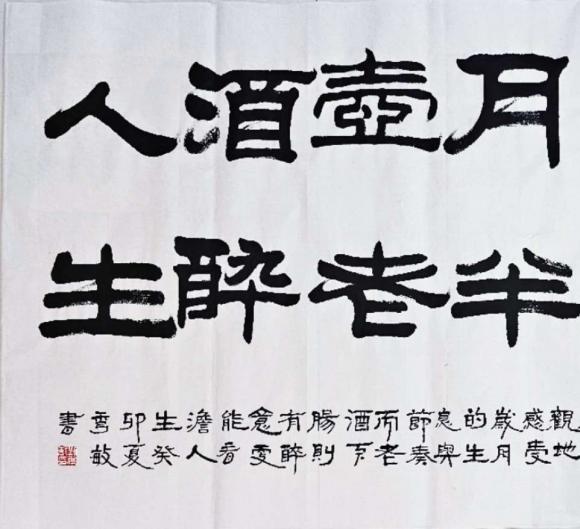 月半
壺老
酒醉
人生
觀地
感受
歲月
的生
息與
節奏
而老
酒下
腸則
有醉
意更
能看
澹人
生癸
卯夏
敏
書